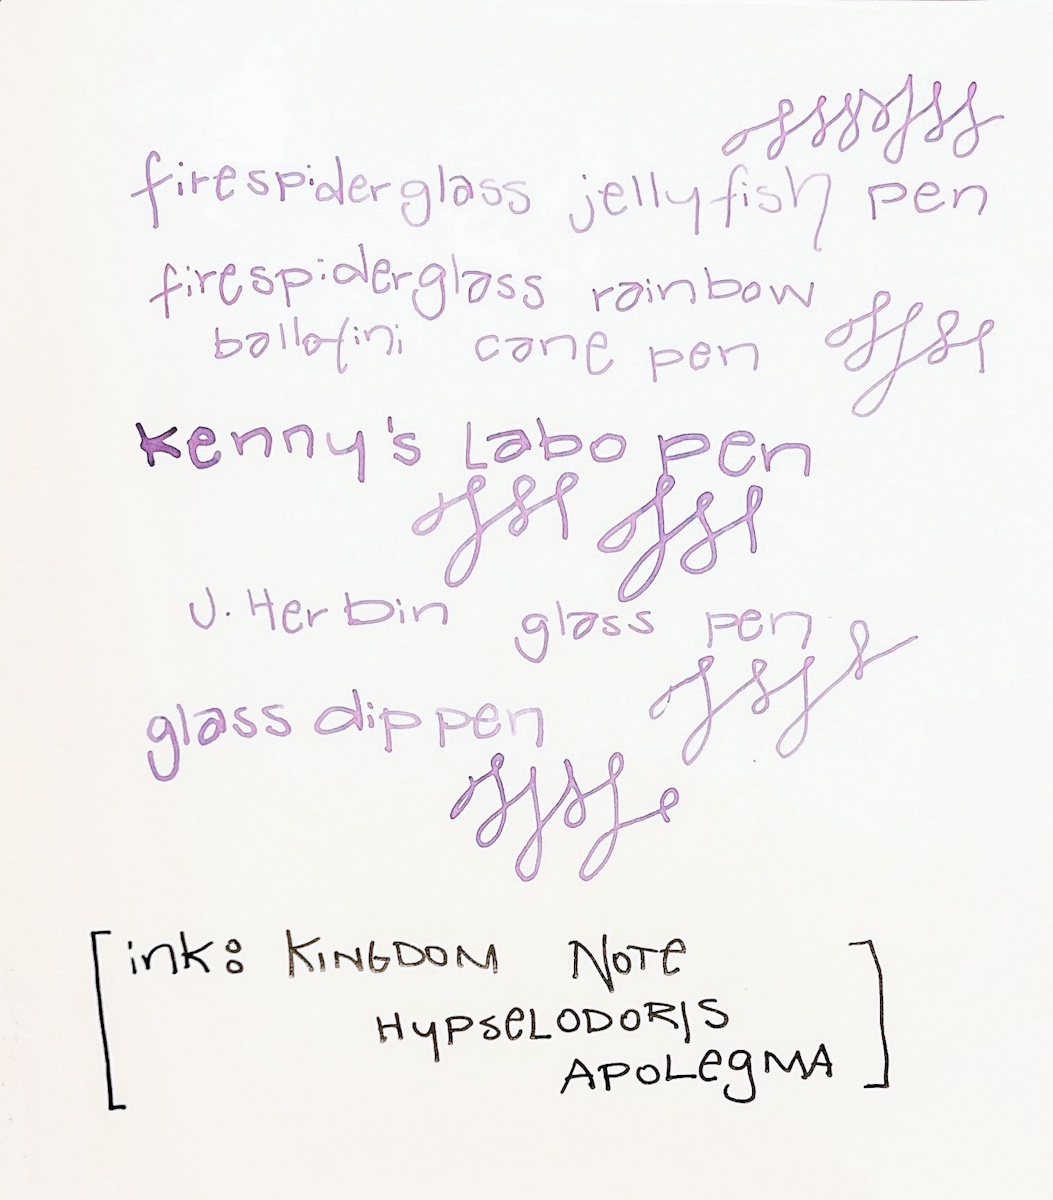 firespiderglass jellyfish pen
firespiderglass rainbow
ballofini cane pen
Kenny's Labo pen
J. Herbin glass pen
glass dip pen
[ink: KINGDOM NOTE
HYPSELODORIS
APOLEGMA]